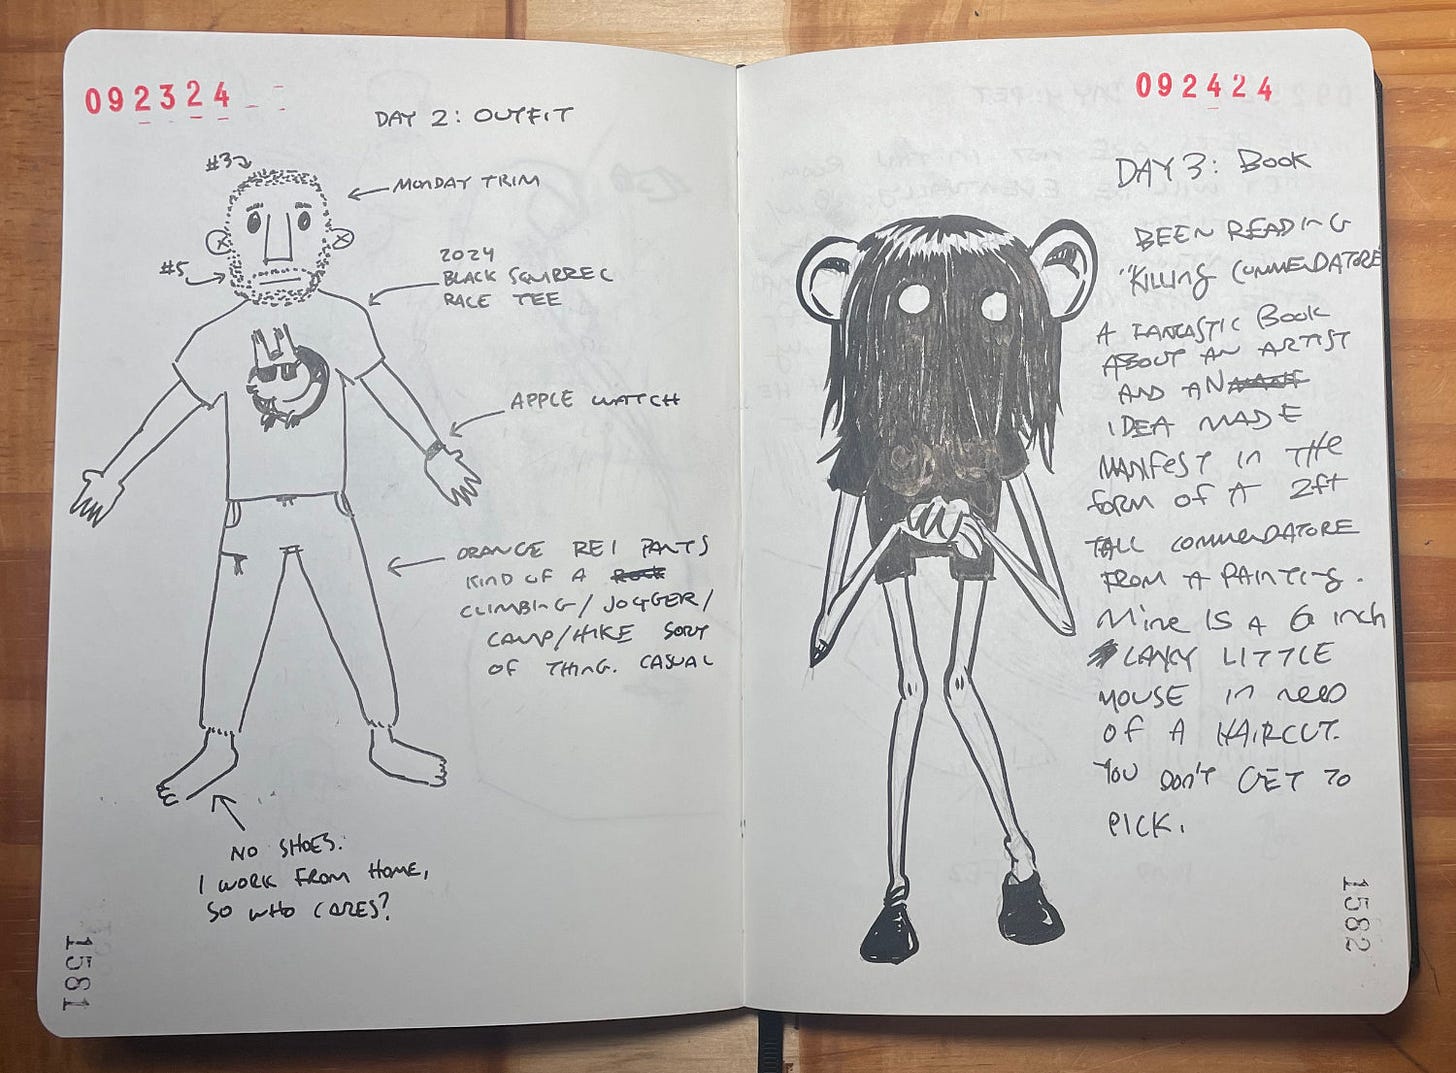 092324
DAY 2: OUTFIT
#3
MONDAY TRIM
#5
2024
BLACK SQUIRREL
RACE TEE
APPLE WATCH
ORANGE REI PANTS
KIND OF A
CLIMBING/JOGGER/
CAMP/HIKE SORT
OF THING. CASUAL
NO SHOES.
I WORK FROM HOME,
SO WHO CARES?
1581
092424
DAY 3: BOOK
BEEN READING
"KILLING COMMENDATORE
A FANTASTIC BOOK
ABOUT AN ARTIST
AND AN
IDEA MADE
MANIFEST IN THE
FORM OF A 2FT
TALL COMMENDATORE
FROM A PAINTING.
MINE IS A 6 INCH
LANKY LITTLE
MOUSE IN NEED
OF A HAIRCUT.
YOU DON'T GET TO
PICK.
1582